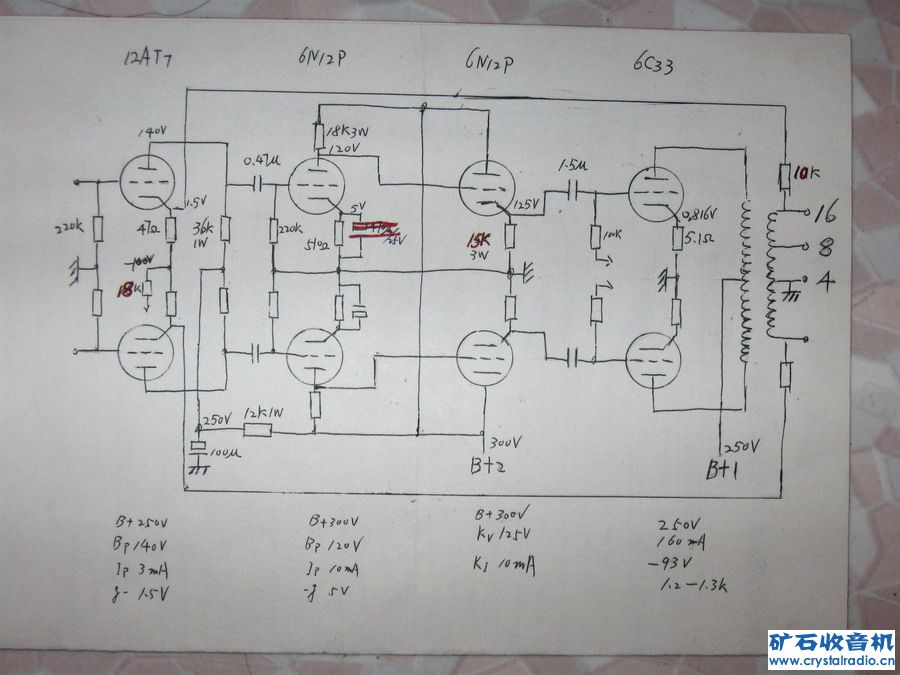 12AT7 6N12P 6N12P 6C33
140V
18K3W
120V
0.47μ
1.5μ
10K
1.5V
5V
125V
0.816V
16
220K
47Ω
36K
1W
220K
510Ω
25V
15K
3W
100K
5.1Ω
8
-100V
18K
4
250V
12K1W
100μ
300V
B+2
250V
B+1
B+250V
BP 140V
IP 3mA
g- 1.5V
B+300V
BP 120V
IP 10mA
-g 5V
B+300V
KV 125V
KI 10mA
250V
160mA
-93V
1.2-1.3K
矿石收音机
www.crystalradio.cn